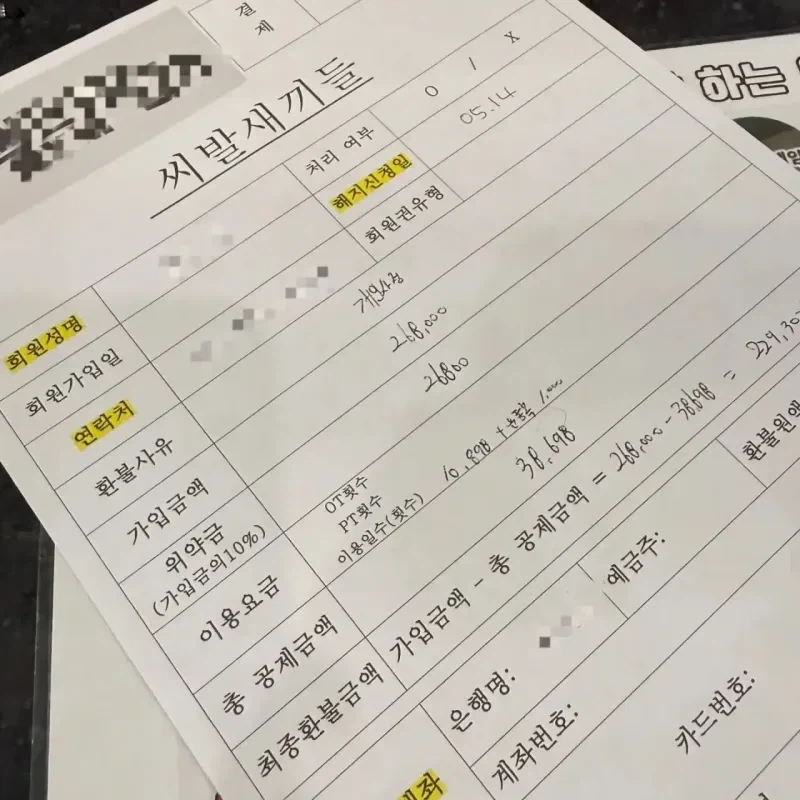 결제
씨발새끼들
처리 여부 O / X
해지신청일 05.14
회원권유형
회원성명
회원가입일
연락처
환불사유 개인사정
가입금액 268,000
위약금 26800
(가입금의10%)
이용요금
OT횟수
PT횟수
이용일수(횟수)
10,898 + 운동복 1,000
총 공제금액 38,698
최종환불금액 가입금액 - 총 공제금액 = 268,000 - 38698 = 229,30
환불원액
은행명:
예금주:
계좌번호:
카드번호:
계좌
하는